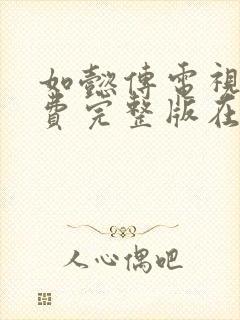 如懿傳電視
費完整版在
人心偶吧